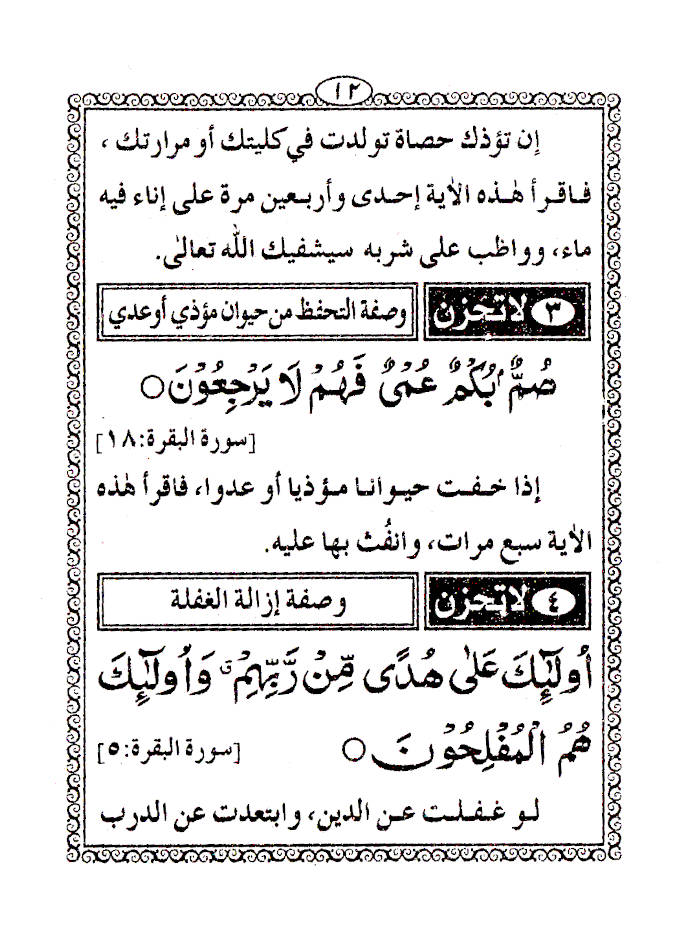 ١٢
إن تؤذك حصاة تولدت في كليتك أو مرارتك ،
فـاقـرأ هٰـذه الآية إحـدى وأربـعين مرة على إناء فيه
ماء، وواظب على شربه سيشفيك الله تعالٰى.
٣ لا تحزن وصفة التحفظ من حيوان مؤذي أو عدي
صُمٌّۢ بُكْمٌ عُمْىٌ فَهُمْ لَا يَرْجِعُوْنَ ○
[سورة البقرة:١٨]
إذا خـفـت حيـوانـا مـؤذيا أو عدوا، فاقرأ هٰذه
الآية سبع مرات، وانفُث بها عليه.
٤ لا تحزن وصفة إزالة الغفلة
أُولٰٓئِكَ عَلٰى هُدًى مِّنْ رَّبِّهِمْ ۗ وَاُولٰٓئِكَ
هُمُ الْمُفْلِحُوْنَ ○ [سورة البقرة:٥]
لـو غـفـلـت عـن الدين، وابتعدت عن الدرب